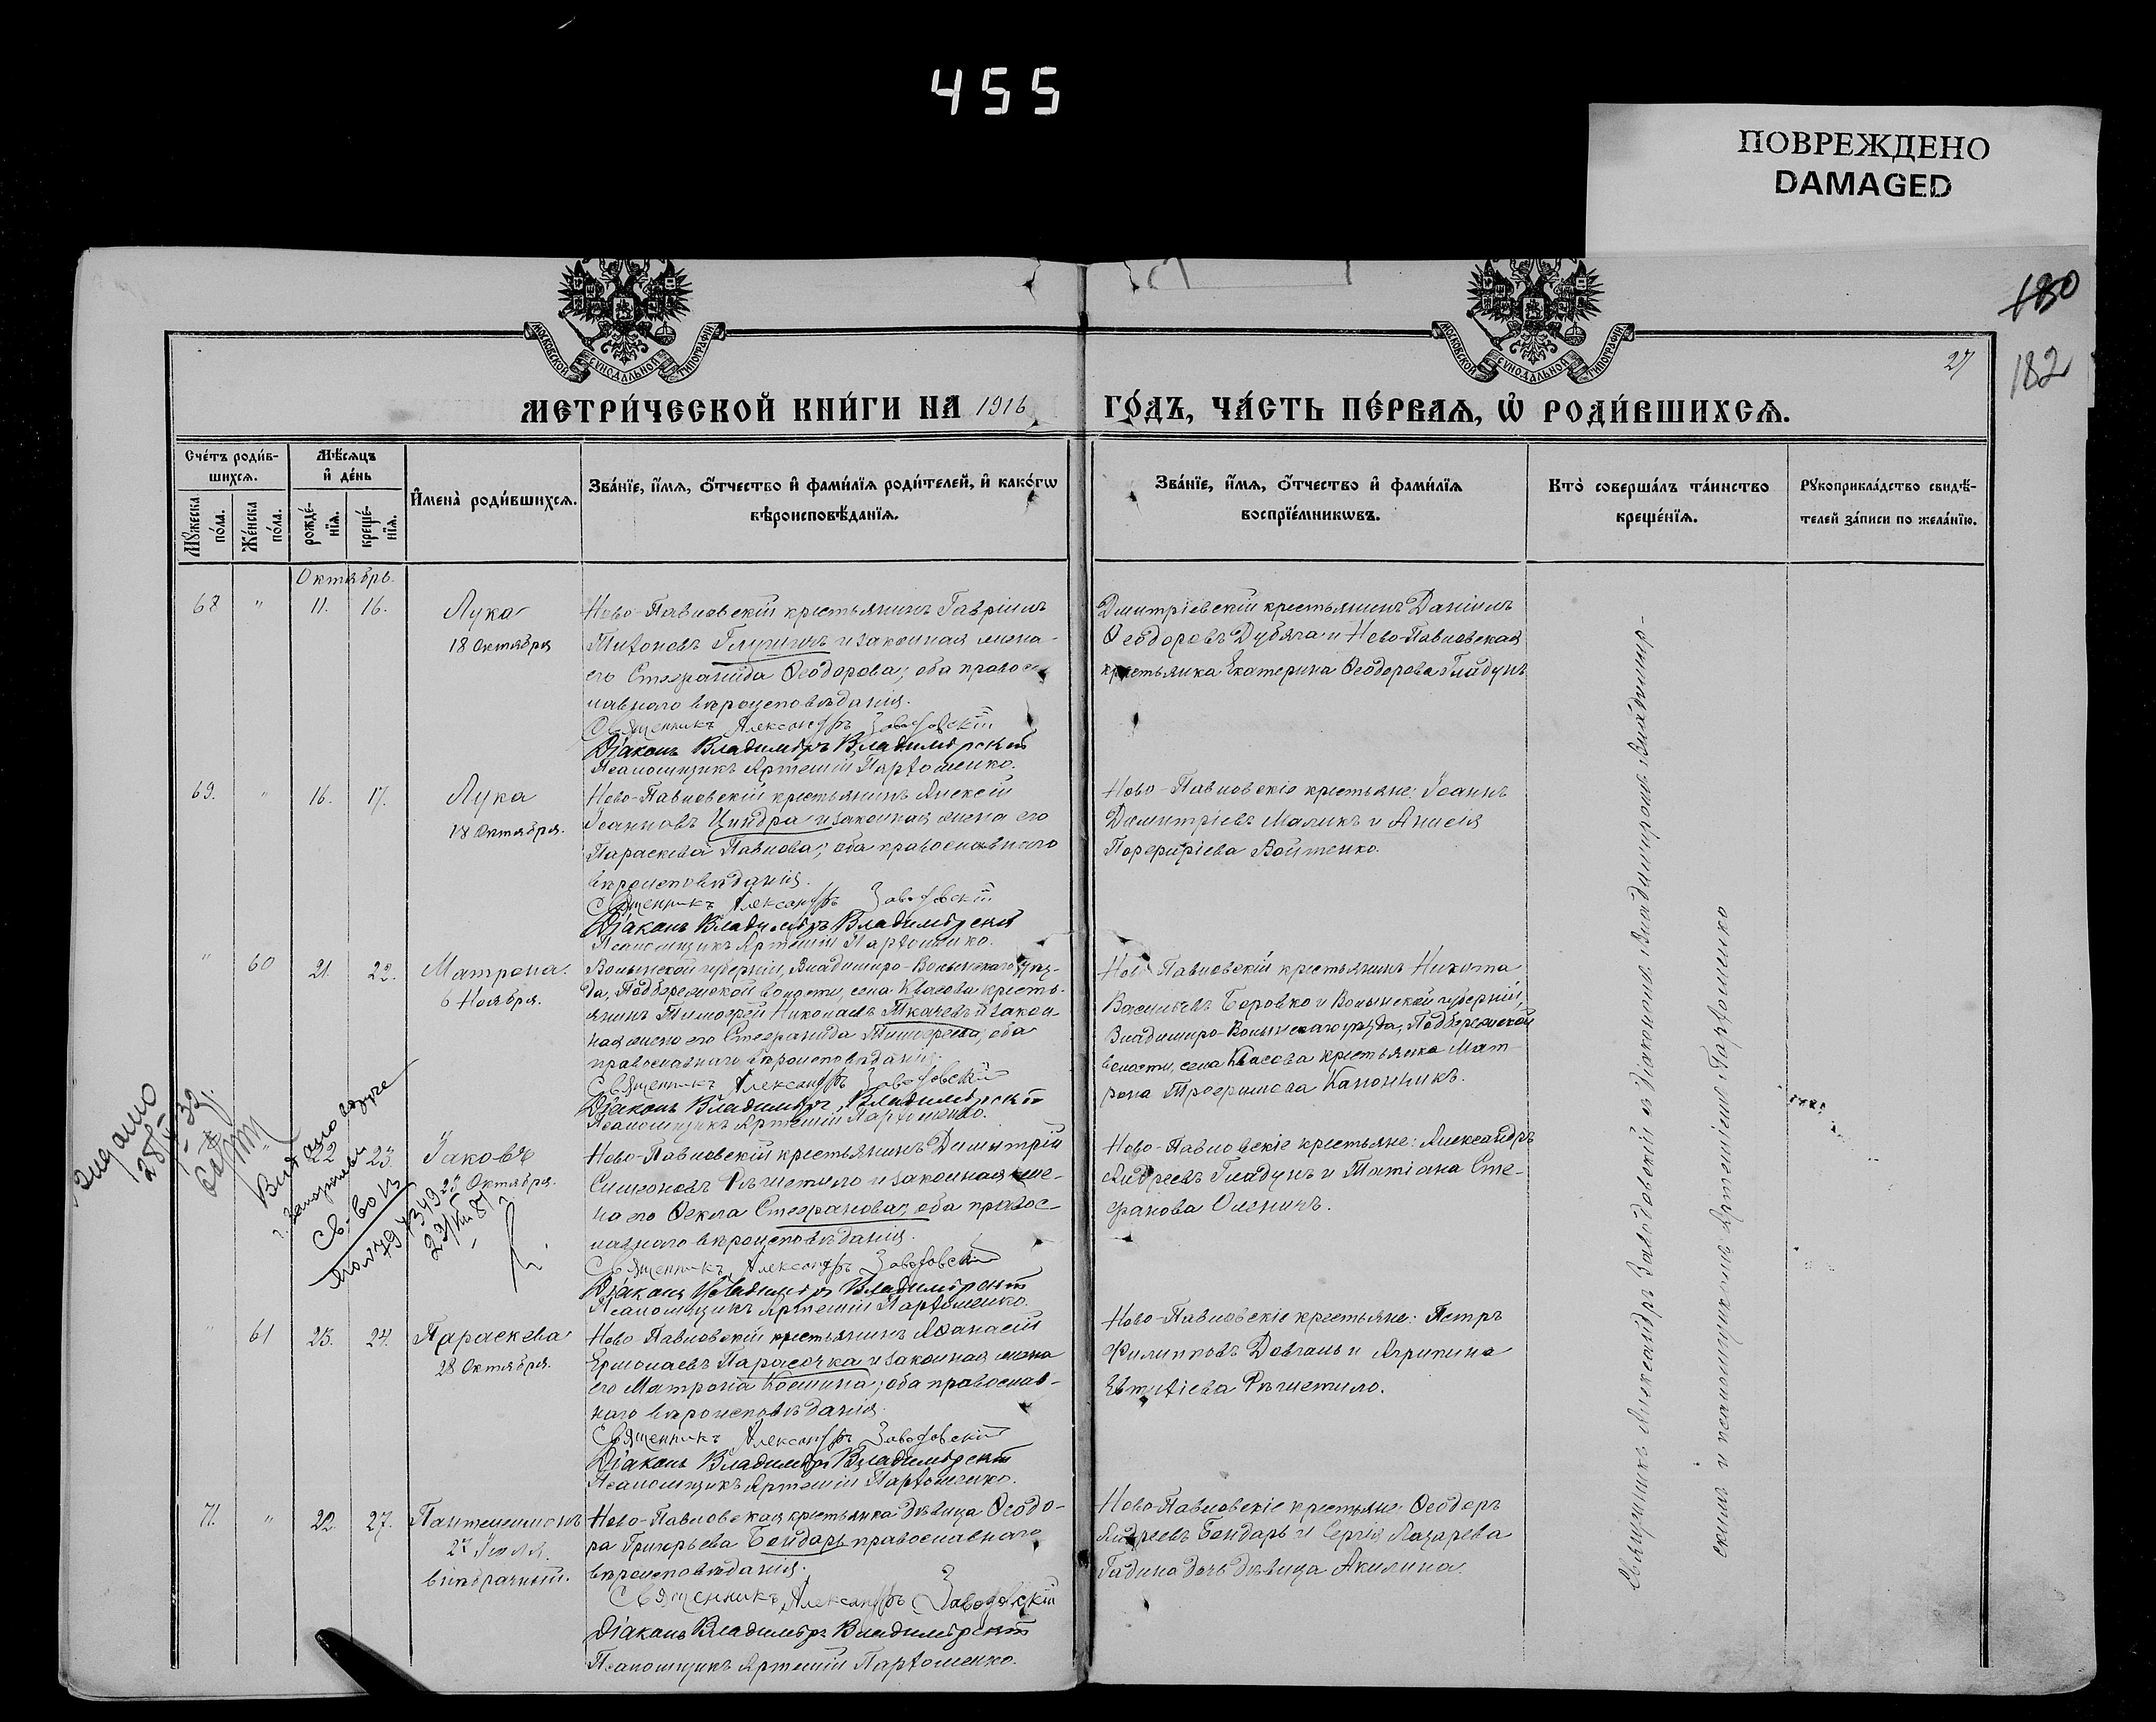 455
ПОВРЕЖДЕНО
DAMAGED
180
182
27
МОСКОВСКОЙ СѴНОДАЛЬНОЙ ТИПОГРАФІИ
МОСКОВСКОЙ СѴНОДАЛЬНОЙ ТИПОГРАФІИ
МЕТРИ́ЧЕСКОЙ КНИ́ГИ НА 1916 ГО́ДЪ, ЧА́СТЬ ПЕ́РВАѦ, Ѡ҆ РОДИ́ВШИХСѦ.
Сче́тъ роди́в-
шихсѧ.
Мꙋ́жеска по́ла.
Же́нска по́ла.
Мѣ́сѧцъ
и҆ де́нь
рожде́-нїѧ.
креще́-нїѧ.
И҆мена̀ роди́вшихсѧ.
Зва́нїе, и҆́мѧ, ѻ҆́тчество и҆ фами́лїѧ роди́телей, и҆ како́гѡ
вѣроисповѣ́данїѧ.
Зва́нїе, и҆́мѧ, ѻ҆́тчество и҆ фами́лїѧ
воспрїе́мникѡвъ.
Кто̀ соверша́лъ та́инство
креще́нїѧ.
Рꙋкоприкла́дство свидѣ́-
телей за́писи по жела́нїю.
Октябрь.
68 " 11. 16. Лука
18 Октября
Ново-Павловскій крестьянинъ Гавріилъ
Тихоновъ и законная жена
его Стефанида Ѳеодорова; оба правос-
лавнаго вѣроисповѣданія.
Священникъ Александръ Заводовскій
Діаконъ Владиміръ Владимірскій
Псаломщикъ Артемій Пархоменко.
Дмитріевскій крестьянинъ Даніилъ
Ѳеодоровъ Дубяга и Ново-Павловская
крестьянка Екатерина Ѳеодорова Гладунъ
69. " 16. 17. Лука
18 Октября.
Ново-Павловскій крестьянинъ Алексій
Іоанновъ Циндра и законная жена его
Параскева Павлова; оба православнаго
вѣроисповѣданія.
Священникъ Александръ Заводовскій
Діаконъ Владиміръ Владимірскій
Псаломщикъ Артемій Пархоменко.
Ново-Павловскіе крестьяне: Іоаннъ
Димитріевъ Маликъ и Анисія
Порфиріева Войтенко.
" 60 21. 22. Матрона.
6 Ноября.
Волынской губерніи, Владиміро-Волынскаго уѣз-
да, Подбережской волости, села Квасова кресть-
янинъ Тимофей Николаевъ Ткачевъ и закон-
ная жена его Стефанида Тимофеева; оба
православнаго вѣроисповѣданія.
Священникъ Александръ Заводовскій
Діаконъ Владиміръ Владимірскій
Псаломщикъ Артемій Пархоменко.
Ново-Павловскій крестьянинъ Никита
Васильевъ Боровко и Волынской губерніи,
Владиміро-Волынскаго уѣзда, Подбережской
волости, села Квасова крестьянка Мат-
рона Трофимова Капончикъ.
Выдано
Выдано
Св-во
" 22 23. Іаковъ
23 Октября.
Ново-Павловскій крестьянинъ Димитрій
Симеоновъ Рѣшетило и законная же-
на его Ѳекла Стефанова; оба правос-
лавнаго вѣроисповѣданія.
Священникъ Александръ Заводовскій
Діаконъ Владиміръ Владимірскій
Псаломщикъ Артемій Пархоменко.
Ново-Павловскіе крестьяне: Александръ
Андреевъ Гладунъ и Татіана Сте-
фанова Оленичъ.
" 61 23. 24. Параскева
28 Октября.
Ново-Павловскій крестьянинъ Аѳанасій
Ермолаевъ Парасочка и законная жена
его Матрона Косьмина; оба православ-
наго вѣроисповѣданія.
Священникъ Александръ Заводовскій
Діаконъ Владиміръ Владимірскій
Псаломщикъ Артемій Пархоменко.
Ново-Павловскіе крестьяне: Петръ
Филипповъ Довгаль и Агрипина
Евтихіева Рѣшетило.
71. " 22. 27. Пантелеимонъ
27 Іюля.
внѣбрачный.
Ново-Павловская крестьянка дѣвица Ѳеодо-
ра Григорьева Бондарь православнаго
вѣроисповѣданія.
Священникъ Александръ Заводовскій
Діаконъ Владиміръ Владимірскій
Псаломщикъ Артемій Пархоменко.
Ново-Павловскіе крестьяне: Ѳеодоръ
Андреевъ Бондарь и Сергія Лазарева
дочь дѣвица Акилина.
Священникъ Александръ Заводовскій съ діакономъ Владиміромъ Владимір-
скимъ и псаломщикомъ Артеміемъ Пархоменко